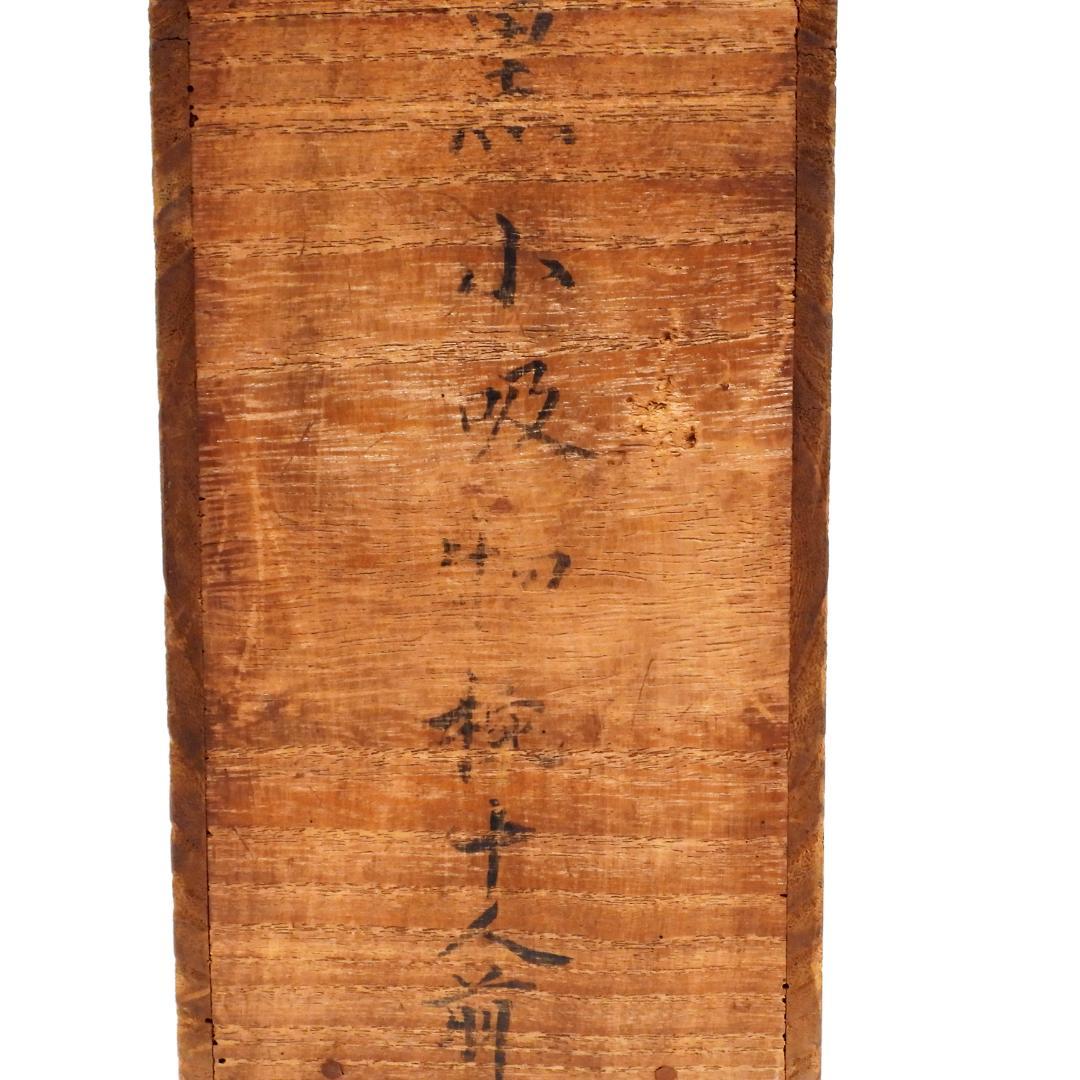 黒小吸物椀十人前